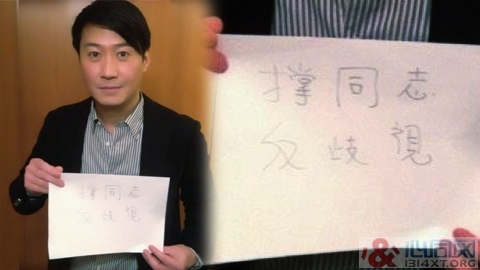 撐同志
反歧視
撐同志
反歧視
心同网
1314XT.ORG